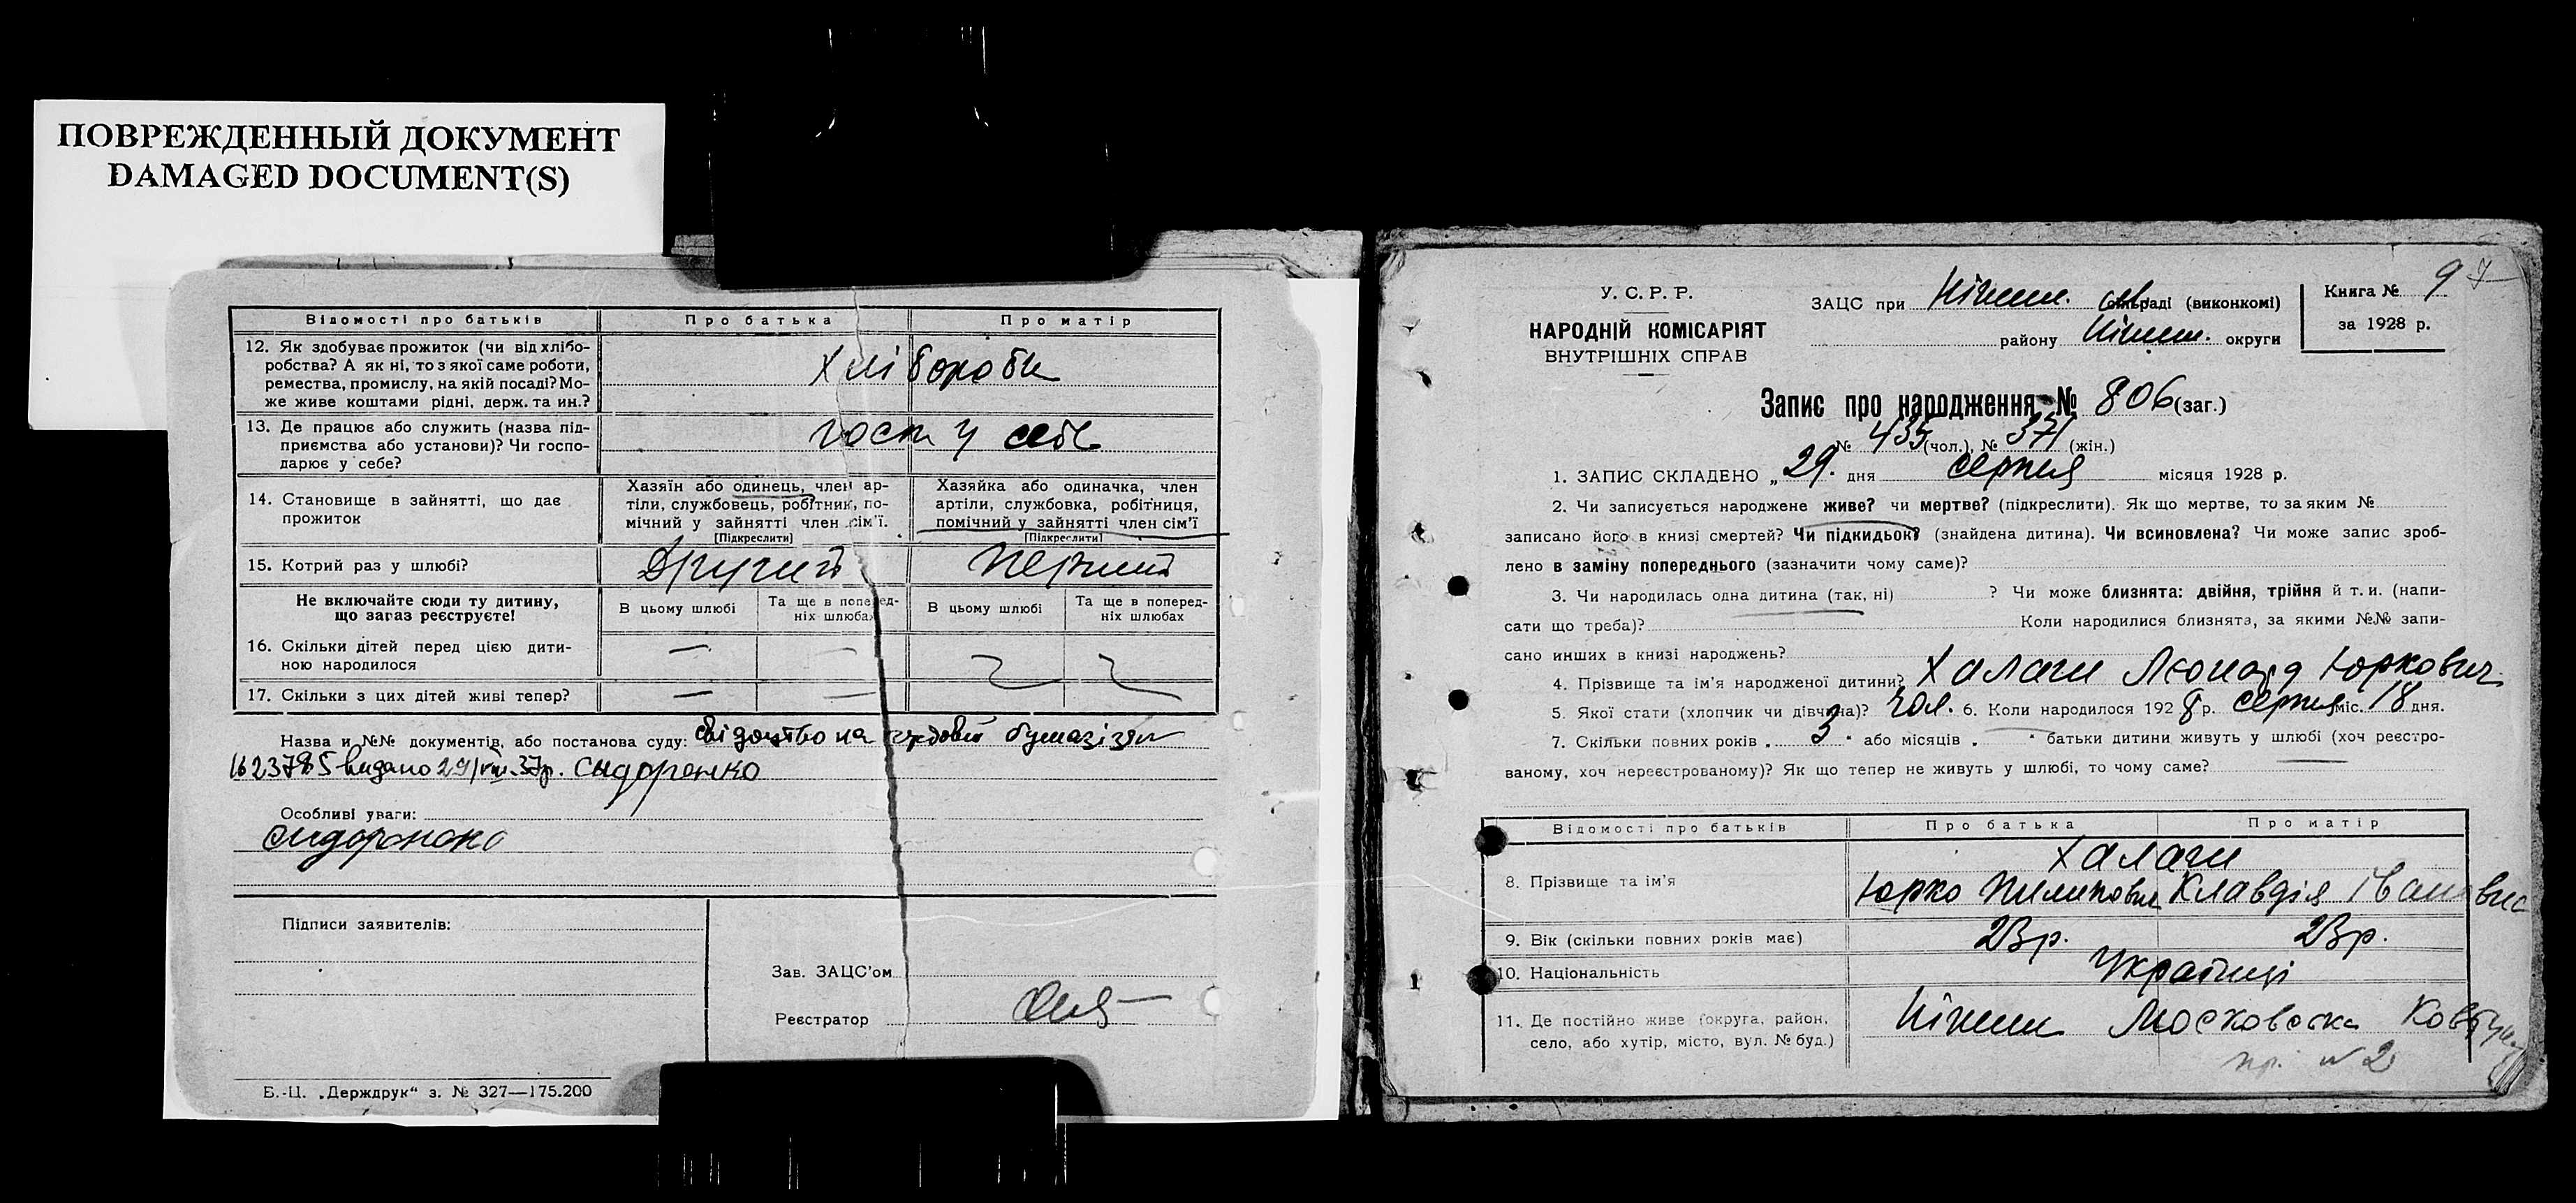 ПОВРЕЖДЕННЫЙ ДОКУМЕНТ
DAMAGED DOCUMENT(S)
Відомості про батьків Про батька Про матір
12. Як здобуває прожиток (чи від хлібо-
робства? А як ні, то з якої саме роботи,
ремества, промислу, на якій посаді? Мо-
же живе коштами рідні, держ. та ин.?
Хлібороби
13. Де працює або служить (назва під-
приємства або установи)? Чи госпо-
дарює у себе?
госп у себе
14. Становище в зайнятті, що дає
прожиток
Хазяїн або одинець, член ар-
тіли, службовець, робітник, по-
мічний у зайнятті член сім'ї.
[Підкреслити]
Хазяйка або одиначка, член
артіли, службовка, робітниця,
помічний у зайнятті член сім'ї
[Підкреслити]
15. Котрий раз у шлюбі? Другий Перший
Не включайте сюди ту дитину,
що зараз реєструєте!
В цьому шлюбі Та ще в поперед-
ніх шлюбах В цьому шлюбі Та ще в поперед-
ніх шлюбах
16. Скільки дітей перед цією дити-
ною народилося — —
17. Скільки з цих дітей живі тепер? — —
Назва и №№ документів, або постанова суду: свідоцтво на
видано 29/VIII.37р. Сидоренко
Особливі уваги:
Сидоренко
Підписи заявителів:
Зав. ЗАЦС'ом
Реєстратор
Б.-Ц. „Держдрук“ з. № 327—175.200
У. С. Р. Р.
НАРОДНІЙ КОМІСАРІЯТ
ВНУТРІШНІХ СПРАВ
ЗАЦС при Ніжин. сільраді (виконкомі)
району Ніжин. округи
Книга № 9
за 1928 р.
Запис про народження № 806 (заг.)
№ 435 (чол.), № 371 (жін.)
1. ЗАПИС СКЛАДЕНО „29. дня серпня місяця 1928 р.
2. Чи записується народжене живе? чи мертве? (підкреслити). Як що мертве, то за яким №
записано його в книзі смертей? Чи підкидьок? (знайдена дитина). Чи всиновлена? Чи може запис зроб-
лено в заміну попереднього (зазначити чому саме)?
3. Чи народилась одна дитина (так, ні) ? Чи може близнята: двійня, трійня й т. и. (напи-
сати що треба)? Коли народилися близнята, за якими №№ запи-
сано инших в книзі народжень?
4. Прізвище та ім'я народженої дитини? Халаги Леонард Юркович
5. Якої стати (хлопчик чи дівчина)? чол. 6. Коли народилося 1928 р. серпня міс. 18 дня.
7. Скільки повних років 3 або місяців батьки дитини живуть у шлюбі (хоч реєстро-
ваному, хоч нереєстрованому)? Як що тепер не живуть у шлюбі, то чому саме?
Відомості про батьків Про батька Про матір
8. Прізвище та ім'я
Халаги
Юрко Пилипович Клавдія Івановна
9. Вік (скільки повних років має) 23р. 23р.
10. Національність Українці
11. Де постійно живе (округа, район,
село, або хутір, місто, вул. № буд.)
Ніжин Московська
пр. №2